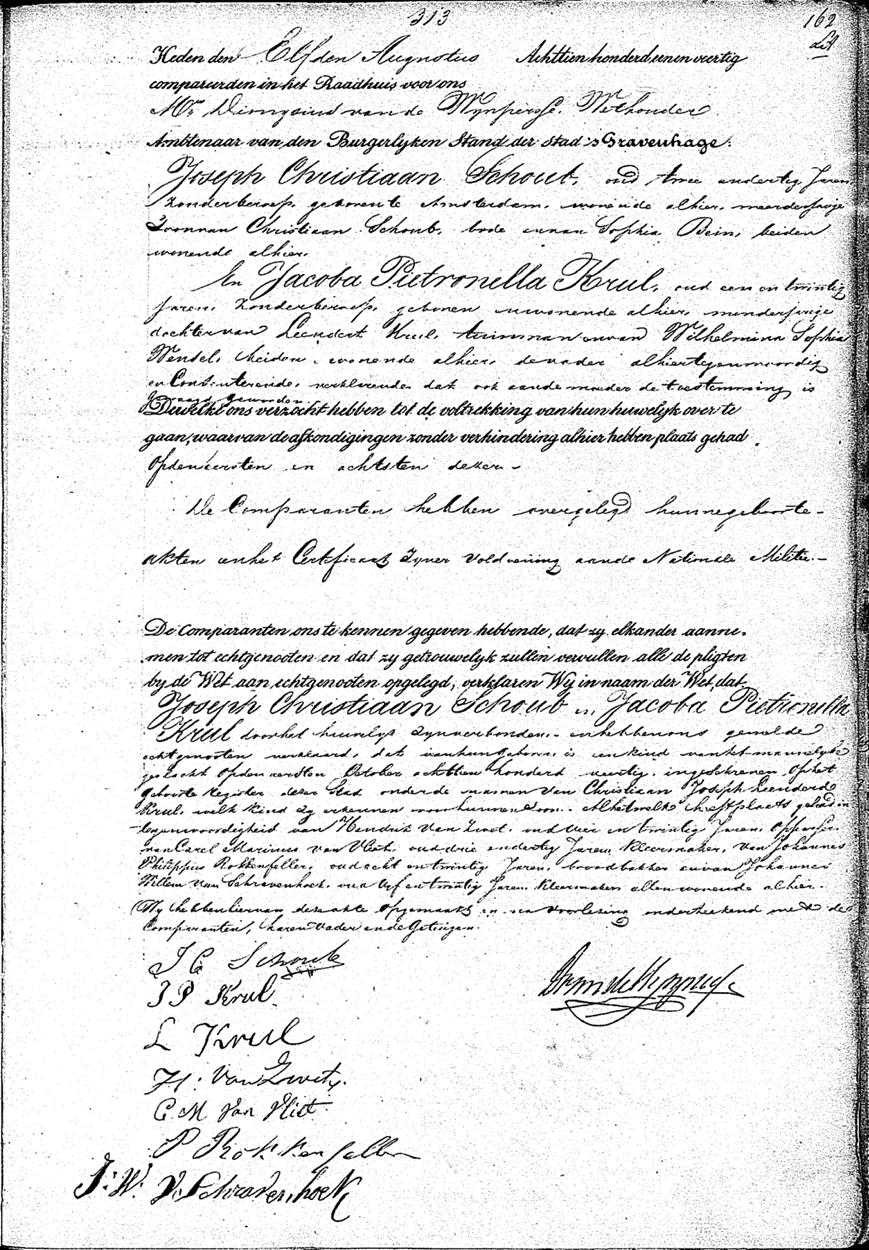 313
162
Heden den Elfden Augustus Achttien honderd een en veertig
compareerden in het Raadhuis voor ons
Mr. Dionysius van de Wijnpersse. Wethouder
Ambtenaar van den Burgerlyken Stand der Stad 's Gravenhage:
Joseph Christiaan Schoub, oud twee en dertig Jaren
zonder beroep, geboren te Amsterdam, wonende alhier, meerderjarige
Zoon van Christiaan Schoub, bode en van Sophia Bein, beiden
wonende alhier.
En Jacoba Pietronella Krul, oud een en twintig
jaren, zonder beroep, geboren en wonende alhier, minderjarige
dochter van Leendert Krul, tuinman en van Wilhelmina Sophia
Wensel, beiden wonende alhier, de vader alhier tegenwoordig
en Consenterende, verklarende dat ook aan de moeder de toestemming is
gevraagd geworden.
Dewelke ons verzocht hebben tot de voltrekking van hun huwelyk over te
gaan, waarvan de afkondigingen zonder verhindering alhier hebben plaats gehad
op den eersten en achtsten dezer
De Comparanten hebben overgelegd hunne geboorte-
akten en het Certificaat zyner voldoening aan de Nationale Militie.
De Comparanten ons te kennen gegeven hebbende, dat zy elkander aanne-
men tot echtgenooten en dat zy getrouwelyk zullen vervullen alle de pligten
by de Wet aan echtgenooten opgelegd, verklaren Wy in naam der Wet, dat
Joseph Christiaan Schoub en Jacoba Pietronella
Krul door het huwelyk zyn verbonden. en hebben ons gemelde
echtgenooten verklaard, dat van hun geboren is een kind van het mannelyke
geslacht op den eersten October achttien honderd veertig, ingeschreven op het
geboorte register dezer Stad onder de namen van Christiaan Joseph Leendert
Krul, welk kind zy erkennen voor hunnen Zoon. Al hetwelke heeft plaats gehad in
tegenwoordigheid van Hendrik van Zwet, oud drie en twintig Jaren, Oppasser
van Carel Marinus van Vliet, oud drie en dertig Jaren, Kleermaker, van Johannes
Philippus Rokkenfeller, oud acht en twintig Jaren, broodbakker en van Johannes
Willem van Schravenhoek, oud vyf en twintig Jaren, Kleermaker allen wonende alhier.
Wy hebben hiervan deze akte opgemaakt en na voorlezing onderteekend met de
Comparanten, haren Vader en de Getuigen.
J C Schoub
J P Krul
L Krul
H. van Zwet
C. M van Vliet
P Rokkenfeller
J. W. v Schravenhoek